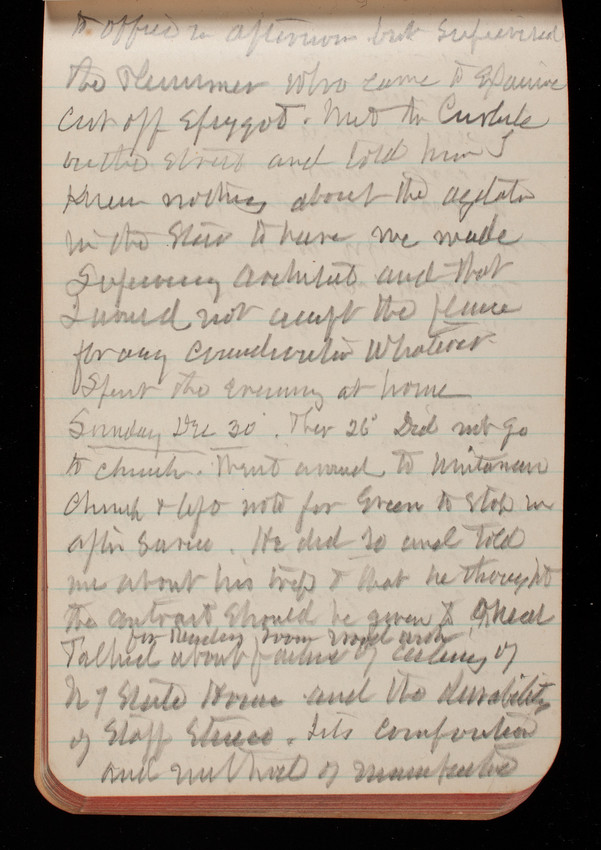 to office in afternoon but supervised
the plummer who came to examine
cut off spygot. Met Mr Carlisle
on the street and told him I
knew nothing about the agitation
in the Star to have me made
Supervising Architect and that
I would not accept the place
for any consideration whatever.
Spent the evening at home
Sunday Dec 30. Ther 26° Did not go
to church. Went around to Unitarian
Church & left note for Green to stop in
after service. He did so and told
me about his trip & that he thought
the contract should be given to
for reading room wood work
Talked about failure of ceiling of
N Y State House and the durability
of Staff Stucco. Its composition
and method of manufacture